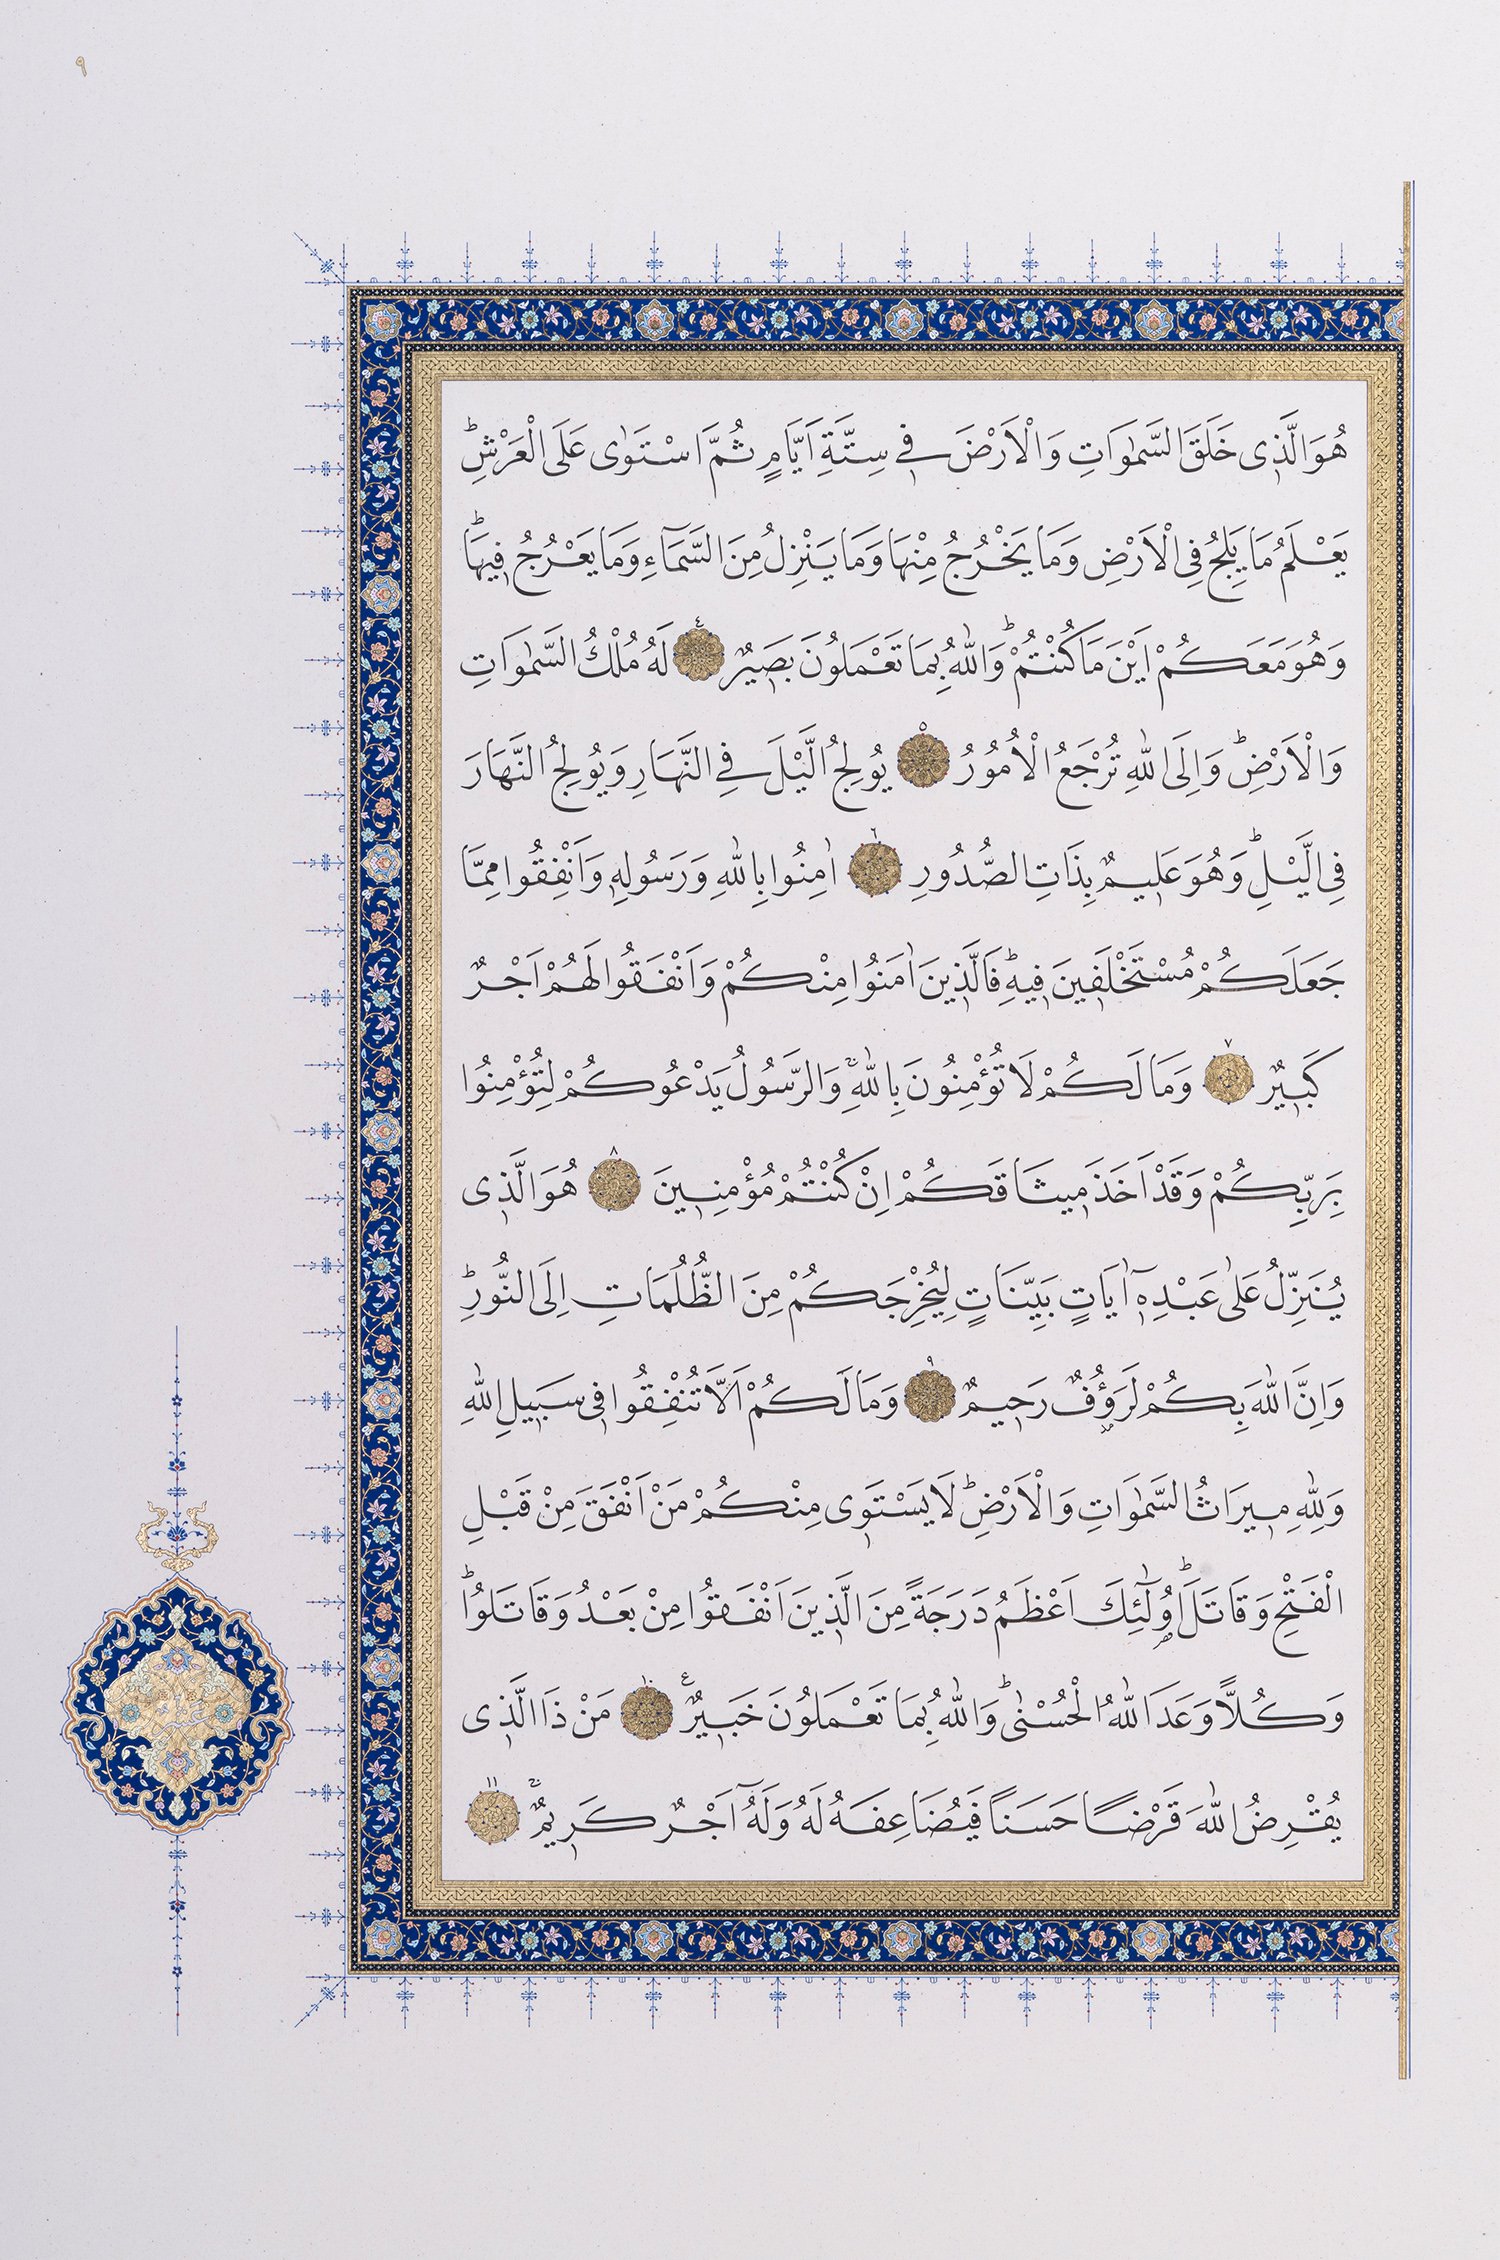 ٩
هُوَ الَّذ۪ي خَلَقَ السَّمٰوَاتِ وَالْاَرْضَ ف۪ي سِتَّةِ اَيَّامٍ ثُمَّ اسْتَوٰى عَلَى الْعَرْشِۜ
يَعْلَمُ مَا يَلِجُ فِي الْاَرْضِ وَمَا يَخْرُجُ مِنْهَا وَمَا يَنْزِلُ مِنَ السَّمَٓاءِ وَمَا يَعْرُجُ ف۪يهَاۜ
وَهُوَ مَعَكُمْ اَيْنَ مَا كُنْتُمْۜ وَاللّٰهُ بِمَا تَعْمَلُونَ بَص۪يرٌ ٤ لَهُ مُلْكُ السَّمٰوَاتِ
وَالْاَرْضِۜ وَاِلَى اللّٰهِ تُرْجَعُ الْاُمُورُ ٥ يُولِجُ الَّيْلَ فِي النَّهَارِ وَيُولِجُ النَّهَارَ
فِي الَّيْلِۜ وَهُوَ عَل۪يمٌ بِذَاتِ الصُّدُورِ ٦ اٰمِنُوا بِاللّٰهِ وَرَسُولِه۪ وَاَنْفِقُوا مِمَّا
جَعَلَكُمْ مُسْتَخْلَف۪ينَ ف۪يهِۜ فَالَّذ۪ينَ اٰمَنُوا مِنْكُمْ وَاَنْفَقُوا لَهُمْ اَجْرٌ
كَب۪يرٌ ٧ وَمَا لَكُمْ لَا تُؤْمِنُونَ بِاللّٰهِۚ وَالرَّسُولُ يَدْعُوكُمْ لِتُؤْمِنُوا
بِرَبِّكُمْ وَقَدْ اَخَذَ م۪يثَاقَكُمْ اِنْ كُنْتُمْ مُؤْمِن۪ينَ ٨ هُوَ الَّذ۪ي
يُنَزِّلُ عَلٰى عَبْدِه۪ٓ اٰيَاتٍ بَيِّنَاتٍ لِيُخْرِجَكُمْ مِنَ الظُّلُمَاتِ اِلَى النُّورِۜ
وَاِنَّ اللّٰهَ بِكُمْ لَرَؤُ۫فٌ رَح۪يمٌ ٩ وَمَا لَكُمْ اَلَّا تُنْفِقُوا ف۪ي سَب۪يلِ اللّٰهِ
وَلِلّٰهِ م۪يرَاثُ السَّمٰوَاتِ وَالْاَرْضِۜ لَا يَسْتَو۪ي مِنْكُمْ مَنْ اَنْفَقَ مِنْ قَبْلِ
الْفَتْحِ وَقَاتَلَۜ اُو۬لٰٓئِكَ اَعْظَمُ دَرَجَةً مِنَ الَّذ۪ينَ اَنْفَقُوا مِنْ بَعْدُ وَقَاتَلُواۜ
وَكُلًّا وَعَدَ اللّٰهُ الْحُسْنٰىۜ وَاللّٰهُ بِمَا تَعْمَلُونَ خَب۪يرٌ۟ ١٠ مَنْ ذَا الَّذ۪ي
يُقْرِضُ اللّٰهَ قَرْضًا حَسَنًا فَيُضَاعِفَهُ لَهُ وَلَهُٓ اَجْرٌ كَر۪يمٌۚ ١١